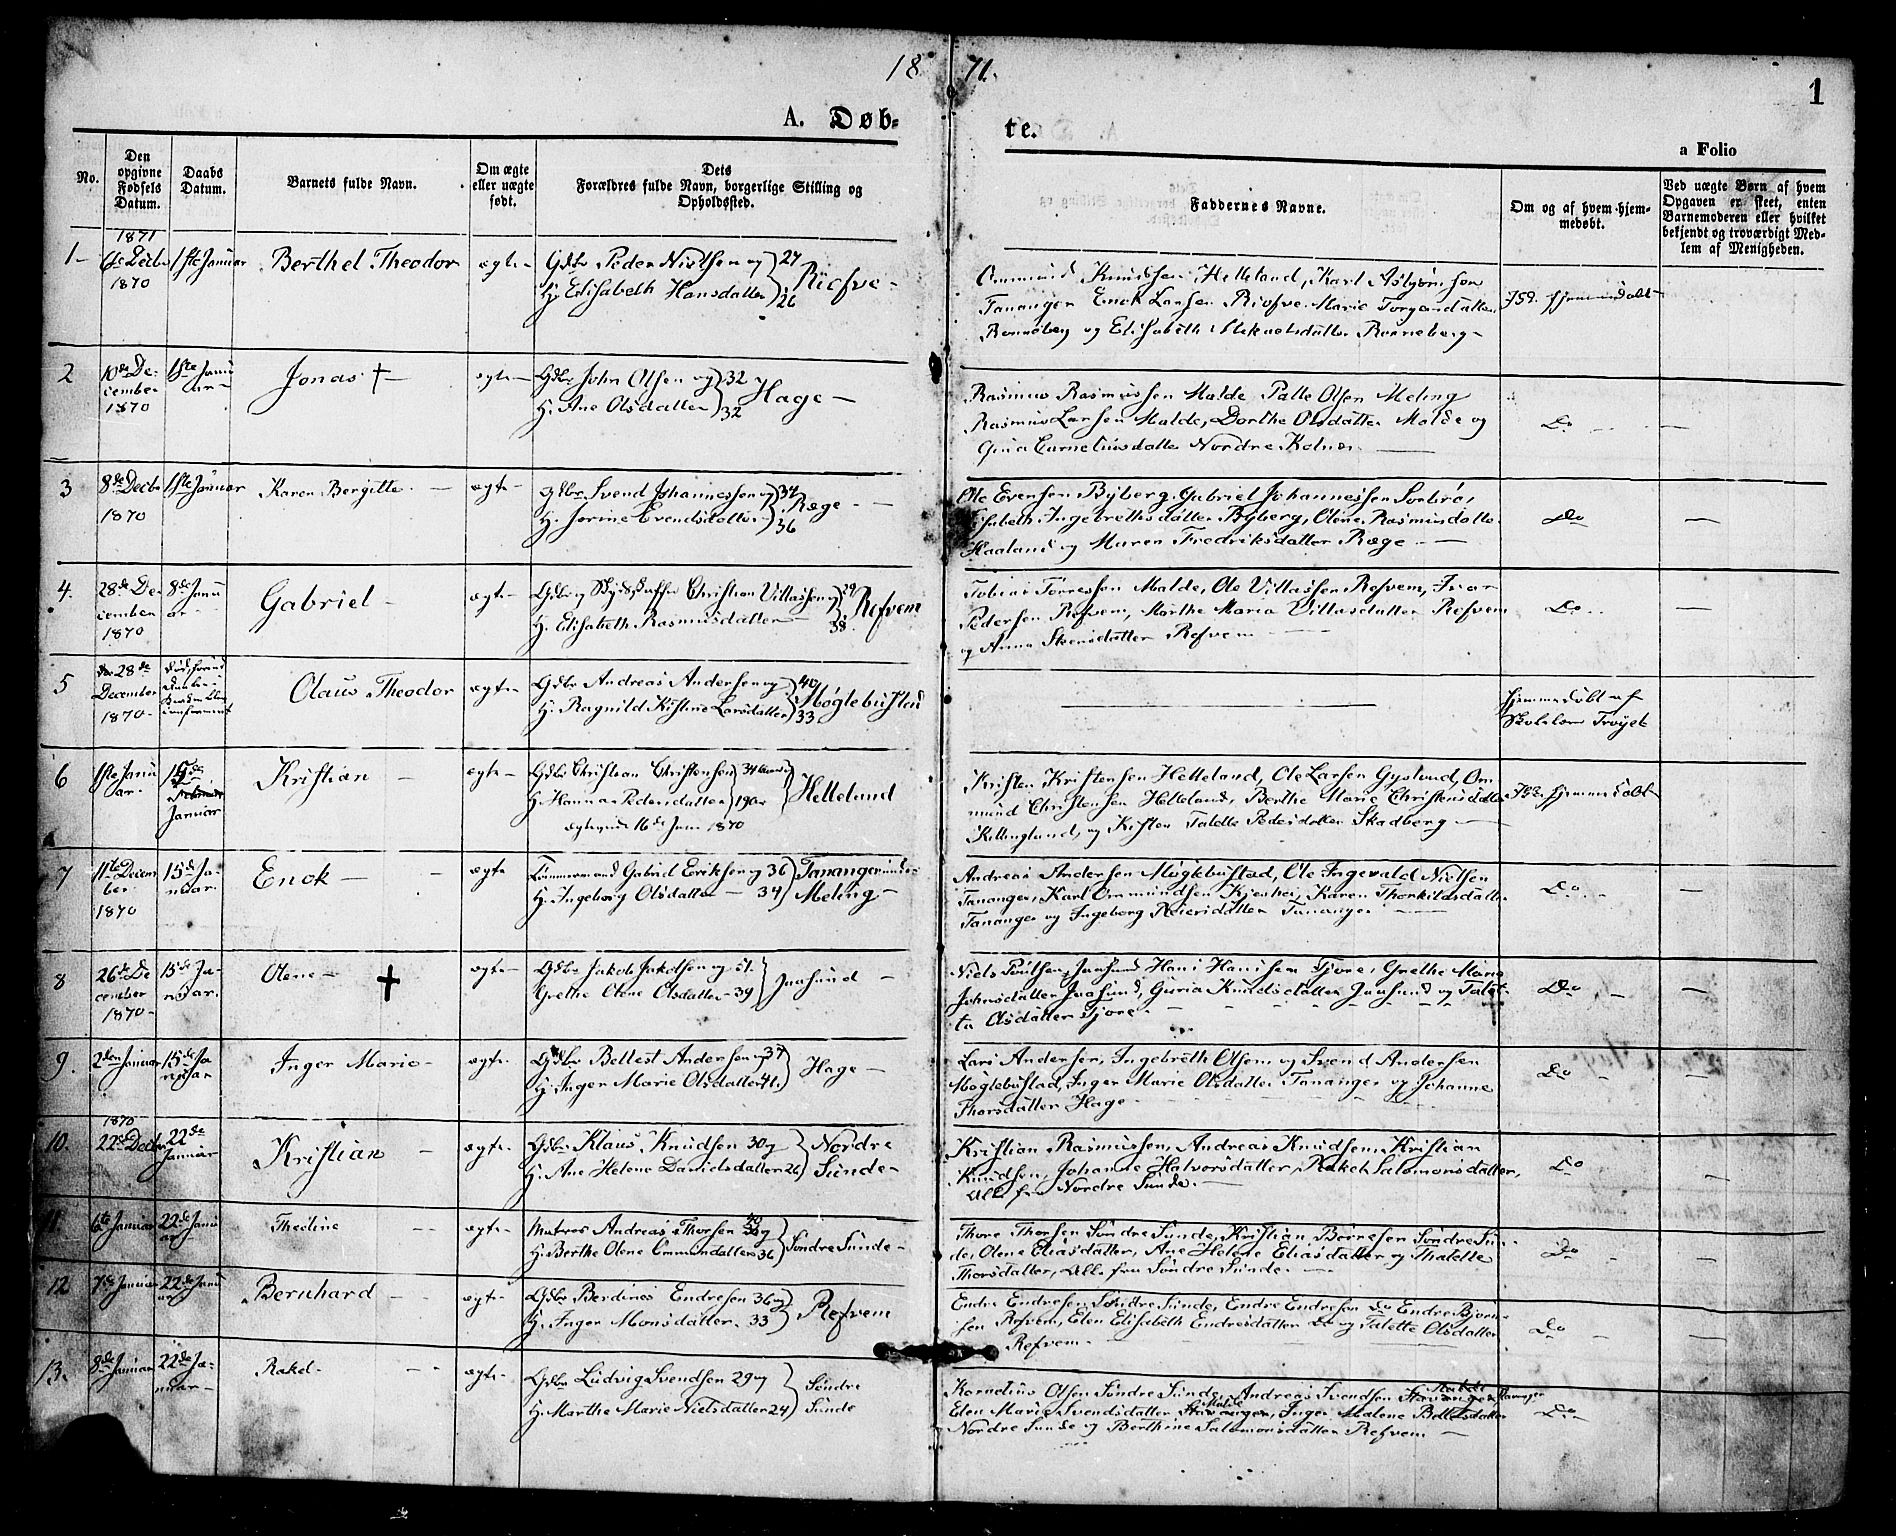 18 71.
1
A. Døb-
te.
a Folio
No.
Den opgivne Fødsels Datum.
Daabs Datum.
Barnets fulde Navn.
Om ægte eller uægte født.
Dets Forældres fulde Navn, borgerlige Stilling og Opholdssted.
Faddernes Navne.
Om og af hvem hjem-medøbt.
Ved uægte Børn af hvem Opgaven er skeet, enten Barnemoderen eller hvilket bekjendt og troværdigt Med-lem af Menigheden.
1871
1- Decbr 1ste Januar Berthel Theodor ægte- Gdbr Peder Nielsen og 27
1870 H. Elisabeth Hansdatter 26
Ommund Knudssen Helleland, Karl Asbjørnsen
Tananger Enok Larsen Marie Torgersdatter
Ronneberg og Elisabeth Mikaelsdatter Ronneberg-
2 10de De- 1ste Janu Jonas † - ægte- Gdbr John Olsen og 32
cember ar- H. Ane Olsdatter 32 Hage-
1870
Rasmus Rasmussen Malde, Palle Olsen Meling
Rasmus Larsen Malde, Dorthe Olsdatter Malde og
Gina Corneliusdatter Nordre Kolnes
Do
3 8de Decbr 1ste Januar Karen Bergitte - ægte- Gdbr Svend Johannessen og 34
1870 H. Serine Evendsdatter 36 Ræge-
Ole Evensen Byberg, Gabriel Johannessen
Elisabeth Ingebrethsdatter Byberg, Olene Rasmusdatter
Haaland og Maren Fredriksdatter Ræge-
Do -
4. 28de De- 8de Janu Gabriel- ægte- Gdbr og Skydsskaffer Christian Villassen og 29
cember ar- H. Elisabeth Rasmusdatter- 38 Refvem
1870
Tobias Torressen Malde, Ole Villassen Refvem, Ivar
Pedersen Refvem, Marthe Maria Villasdatter Refvem
og Anna Steensdatter Refvem
Do -
5 28de December 1870- Olaus Theodor ægte- Gdbr Andreas Andersen og 40
H. Ragnild Kistine Larsdatter 33 Møglebustad
Hjemmedøbt af
Skolelærer
6 1ste Janu 15de Kristian - ægte- Gdbr Christian Christensen 34
ar. Januar H. Hanna Pedersdatter 19 Helleland
16de Juni 1870
Kristen Kristensen Helleland, Ole Larsen Om-
mund Christensen Helleland, Berthe Marie Christensdatter
og Kisten Talette Pedersdatter Skadberg -
hjemmedøbt
7 11te Decem 15de Ja- Enok - ægte Tømmermand Gabriel Eriksen og 36 Tananger under
ber nuar. H. Ingeborg Olsdatter- 34 Meling-
1870
Andreas Andersen Møglebustad, Ole Ingevald Nielsen
Tananger, Karl Ommundsen Karen Thorkildsdatter
Tananger og Ingeborg Tananger
Do -
8 26de De 15de Ja- Olene- † ægte- Gdbr Jakob Jakobsen og 51.
cember nuar. Grethe Olene Olsdatter- 39 Jaasund-
1870-
Niels Poulsen Jaasund Hans Hansen Tjore, Grethe Maria
Johnsdatter Jaasund, Guria Knudsdatter Jaasund og Talet-
ta Olsdatter Tjore.
Do -
9. 2den Januar 15de Ja Inger Marie- ægte- Gdbr Bellest Andersen og 37
nuar H. Inger Marie Olsdatter 41. Hage-
Lars Andersen, Ingebreth Olsen og Svend Andersen
Møglebustad, Inger Marie Olsdatter Tananger og Johanne
Thorsdatter Hage-
Do -
1870
10. 22de Decbr 22de Kristian - ægte- Gdbr Klaus Knudsen 30 og Nordre
Januar H. Ane Helene Davidsdatter 26 Sunde-
Kristian Rasmussen, Andreas Knudsen, Kristian
Knudsen, Johanne Halvorsdatter, Rakel Salomonsdatter,
Alle fra Nordre Sunde.-
Do -
11. 6te Januar 22de Janu Thedine ægte- Matros Andreas Thorsen 40 og
ar H. Berthe Olene Ommundsdatter 36 Søndre Sunde-
Thore Thorsen Søndre Sunde, Kristian Børresen Søndre Sun-
de, Olene Eliasdatter, Ane Helene Eliasdatter og Thalette
Thorsdatter, Alle fra Søndre Sunde.
Do -
12 7de Januar 22de Janu Bernhard - ægte- Gdbr Berdines Endresen 36 og
ar H. Inger Monsdatter. 33 Refvem
Endre Endresen Søndre Sunde, Endre Endresen do Endre Bjørn-
sen Refvem, Elen Elisabeth Endresdatter do og Talette Olsdatter
Refvem-
Do -
13. 8de Januar 22de Ja- Rakel- ægte- Gdbr Ludvig Svendsen 29 og Søndre
nuar- H. Marthe Marie Nielsdatter 24 Sunde
Kornelius Olsen Søndre Sunde, Andreas Svendsen Malde Stavanger
Elen Marie Svendsdatter Malde Stavanger, Inger Malene Bellesdatter
Nordre Sunde og Berthine Salomonsdatter Refvem -
Do -